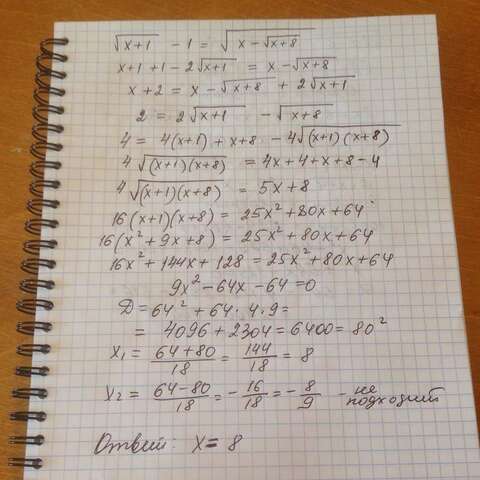 √(x+1) - 1 = √(x - √(x+8))
x+1+1-2√(x+1) = x - √(x+8)
x+2 = x - √(x+8) + 2√(x+1)
2 = 2√(x+1) - √(x+8)
4 = 4(x+1) + x+8 - 4√((x+1)(x+8))
4√((x+1)(x+8)) = 4x+4+x+8-4
4√((x+1)(x+8)) = 5x+8
16(x+1)(x+8) = 25x²+80x+64
16(x²+9x+8) = 25x²+80x+64
16x²+144x+128 = 25x²+80x+64
9x²-64x-64=0
D = 64² + 64·4·9=
= 4096+2304=6400=80²
x₁ = (64+80)/18 = 144/18 = 8
x₂ = (64-80)/18 = -16/18 = -8/9 - не подходит
Ответ: x = 8